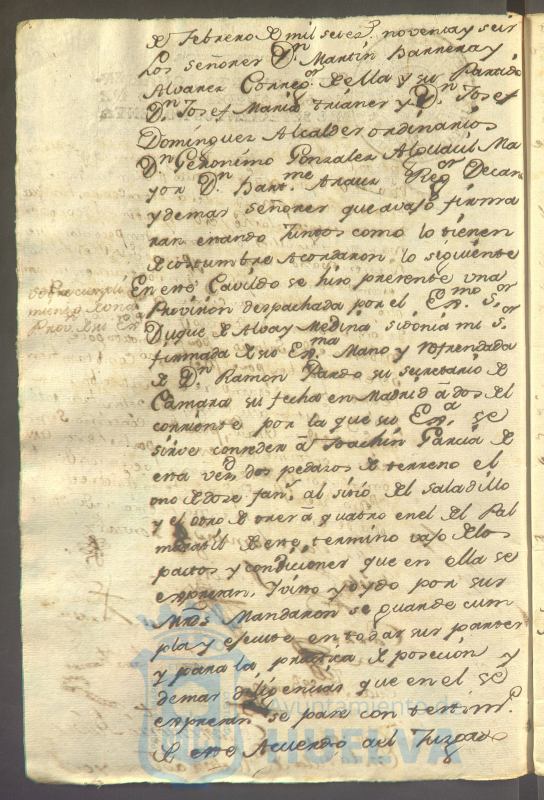 de Febrero de mil setez.s noventa y seis
Los señores Dn. Martin Barrera y
Alvarez Correg.or de ella y su Partido
Dn. Josef Maria trianes y Dn. Josef
Dominguez Alcaldes ordinarios
Dn. Geronimo Gonzalez Alguasil Ma
yor Dn. Bart.me Arauz Reg.or Decano
y demas señores que avajo firma
ran estando Juntos como lo tienen
de costumbre Acordaron lo siguiente
En este Cavildo se hiso presente una
Provision despachada por el Ex.mo S.or
Duque de Alva y Medina sidonia mi S.or
firmada de su Ex.ma Mano y refrendada
de Dn. Ramon Pardo su secretario de
Camara su fecha en Madrid á dos del
corriente por la que su Ex.a se
sirve conceder á Joachin Garcia de
esta vez.d dos pedazos de terreno el
uno de dose fan.s al sitio del Saladillo
y el otro de tres á quatro en el del Pal
matil de este termino vajo de los
pactos y condiciones que en ella se
expresan, Visto y oydo por sus
Mrds. Mandaron se guarde cum
pla y execute en todas sus partes
y para la practica de posecion y
demas diligencias que en el se
expresan se pase con testim.o
de este Acuerdo al Juzgado
sobre cumpli
miento de una
Prov.on de su Ex.a
Ayuntamiento de
HUELVA